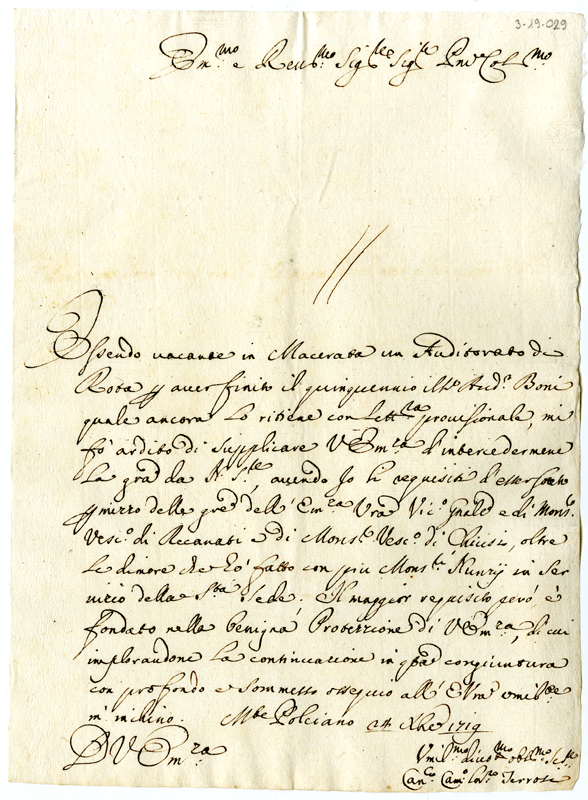 3-19.029
Em.mo e Rev.mo Sig.re Sig.re Pne Col.mo
Essendo vacante in Macerata un Auditorato di
Rota p aver finito il quinquennio il Aud.e Boni
quale ancora lo ritiene con lett.ra provisionale, mi
fò ardito di supplicare V Em.ra d'intercedermene
la gra da N. S.re, avendo Io li requisiti d'esser stato
p mezzo della gra dell' Em.ra Vra Vic.o Gnale e di Mons.r
Vesc.o di Recanati e di Mons.r Vesc.o di Chiusi, oltre
le dimore che hò fatto con più Mons.ri Nunzij in ser
vizio della S.ta Sede. Il maggior requisito però è
fondato nella benigna Protezzione di V Em.ra, di cui
implorandone la continuazione in qta congiuntura
con profondo e sommesso ossequio all' E Vra umil.te
m' inchino. M.te Polciano 24 Xbre 1719
D V Em.ra
Umil.mo Divot.mo Obl.mo Ser.re
Can.co Cam.o